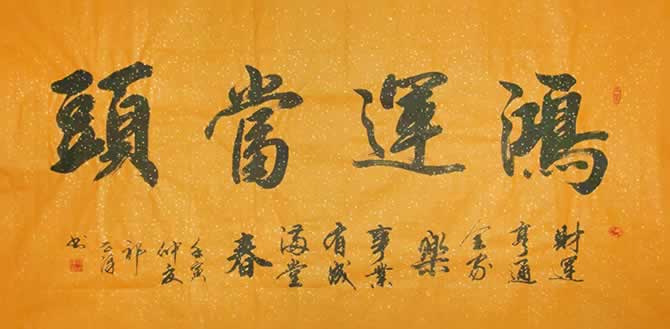 鴻運當頭
財運
亨通
全家
樂
事業
有成
滿堂
春
壬寅
仲夏
祁
書